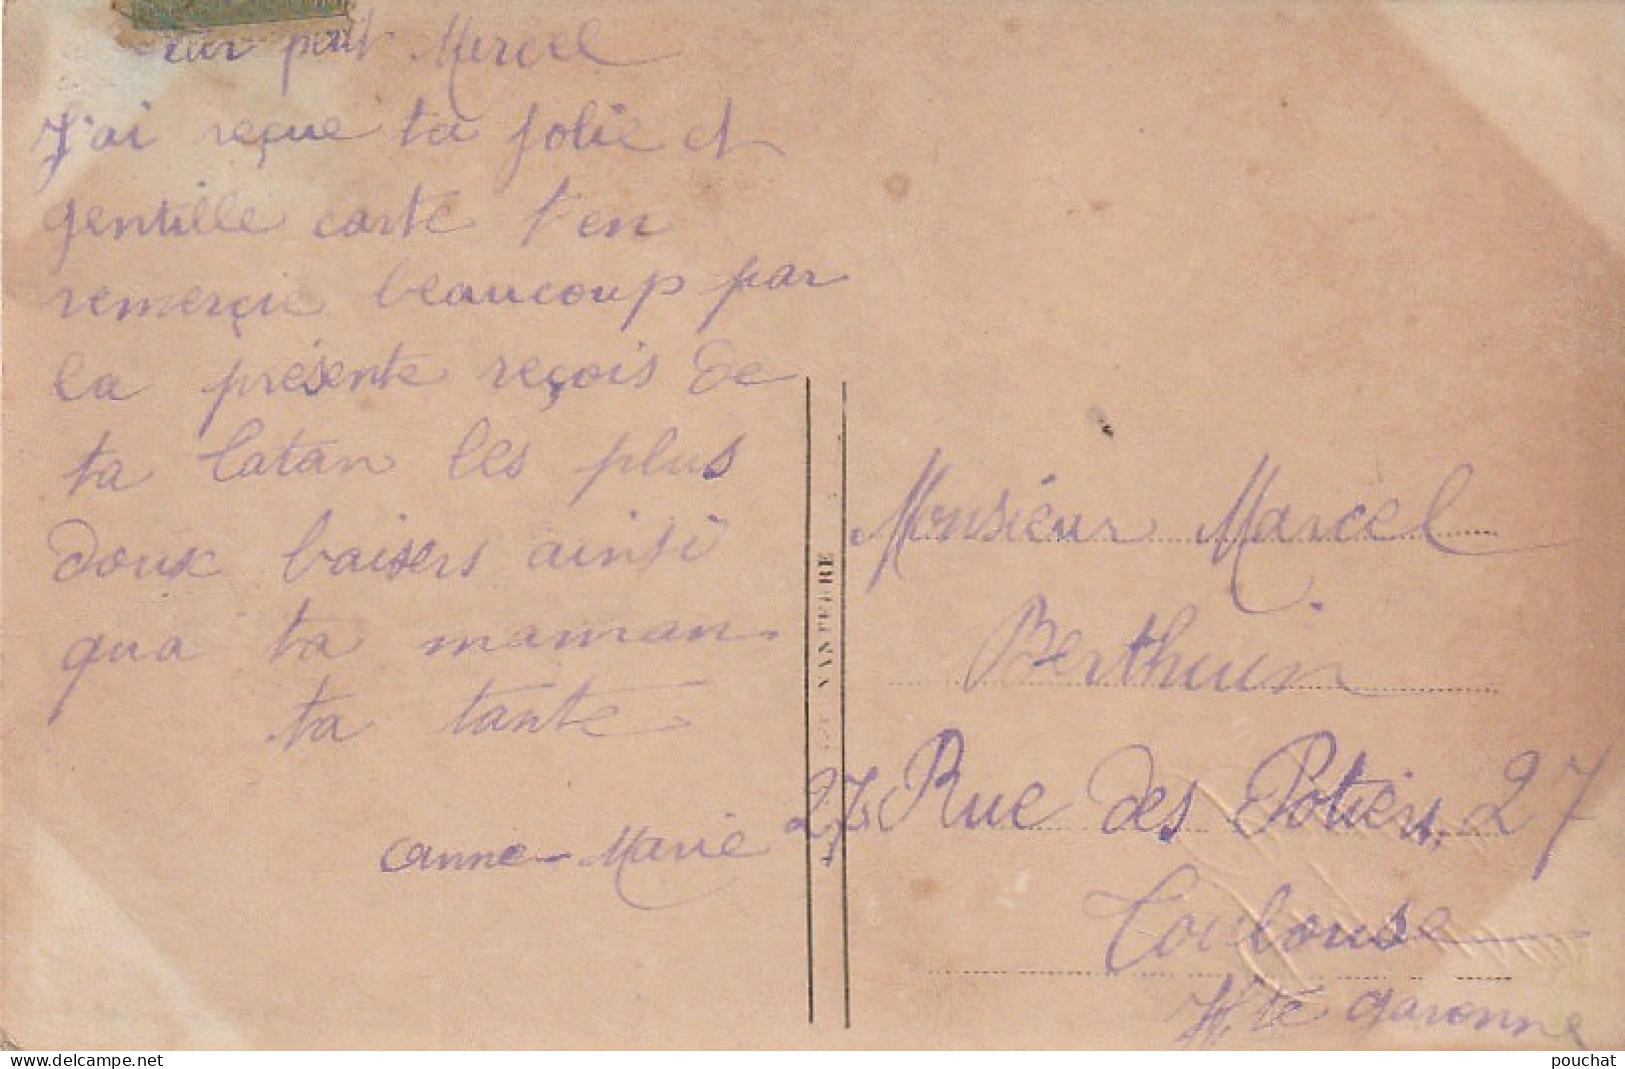 petit Marcel
J'ai reçue ta jolie et
gentille carte t'en
remerçie beaucoup par
la présente reçois de
ta tatan les plus
doux baisers ainsi
qua ta maman.
ta tante
anne-Marie
Monsieur Marcel
Berthuin
27 Rue des Potiers, 27
Toulouse
Hte garonne
delcampe.net
pouchat